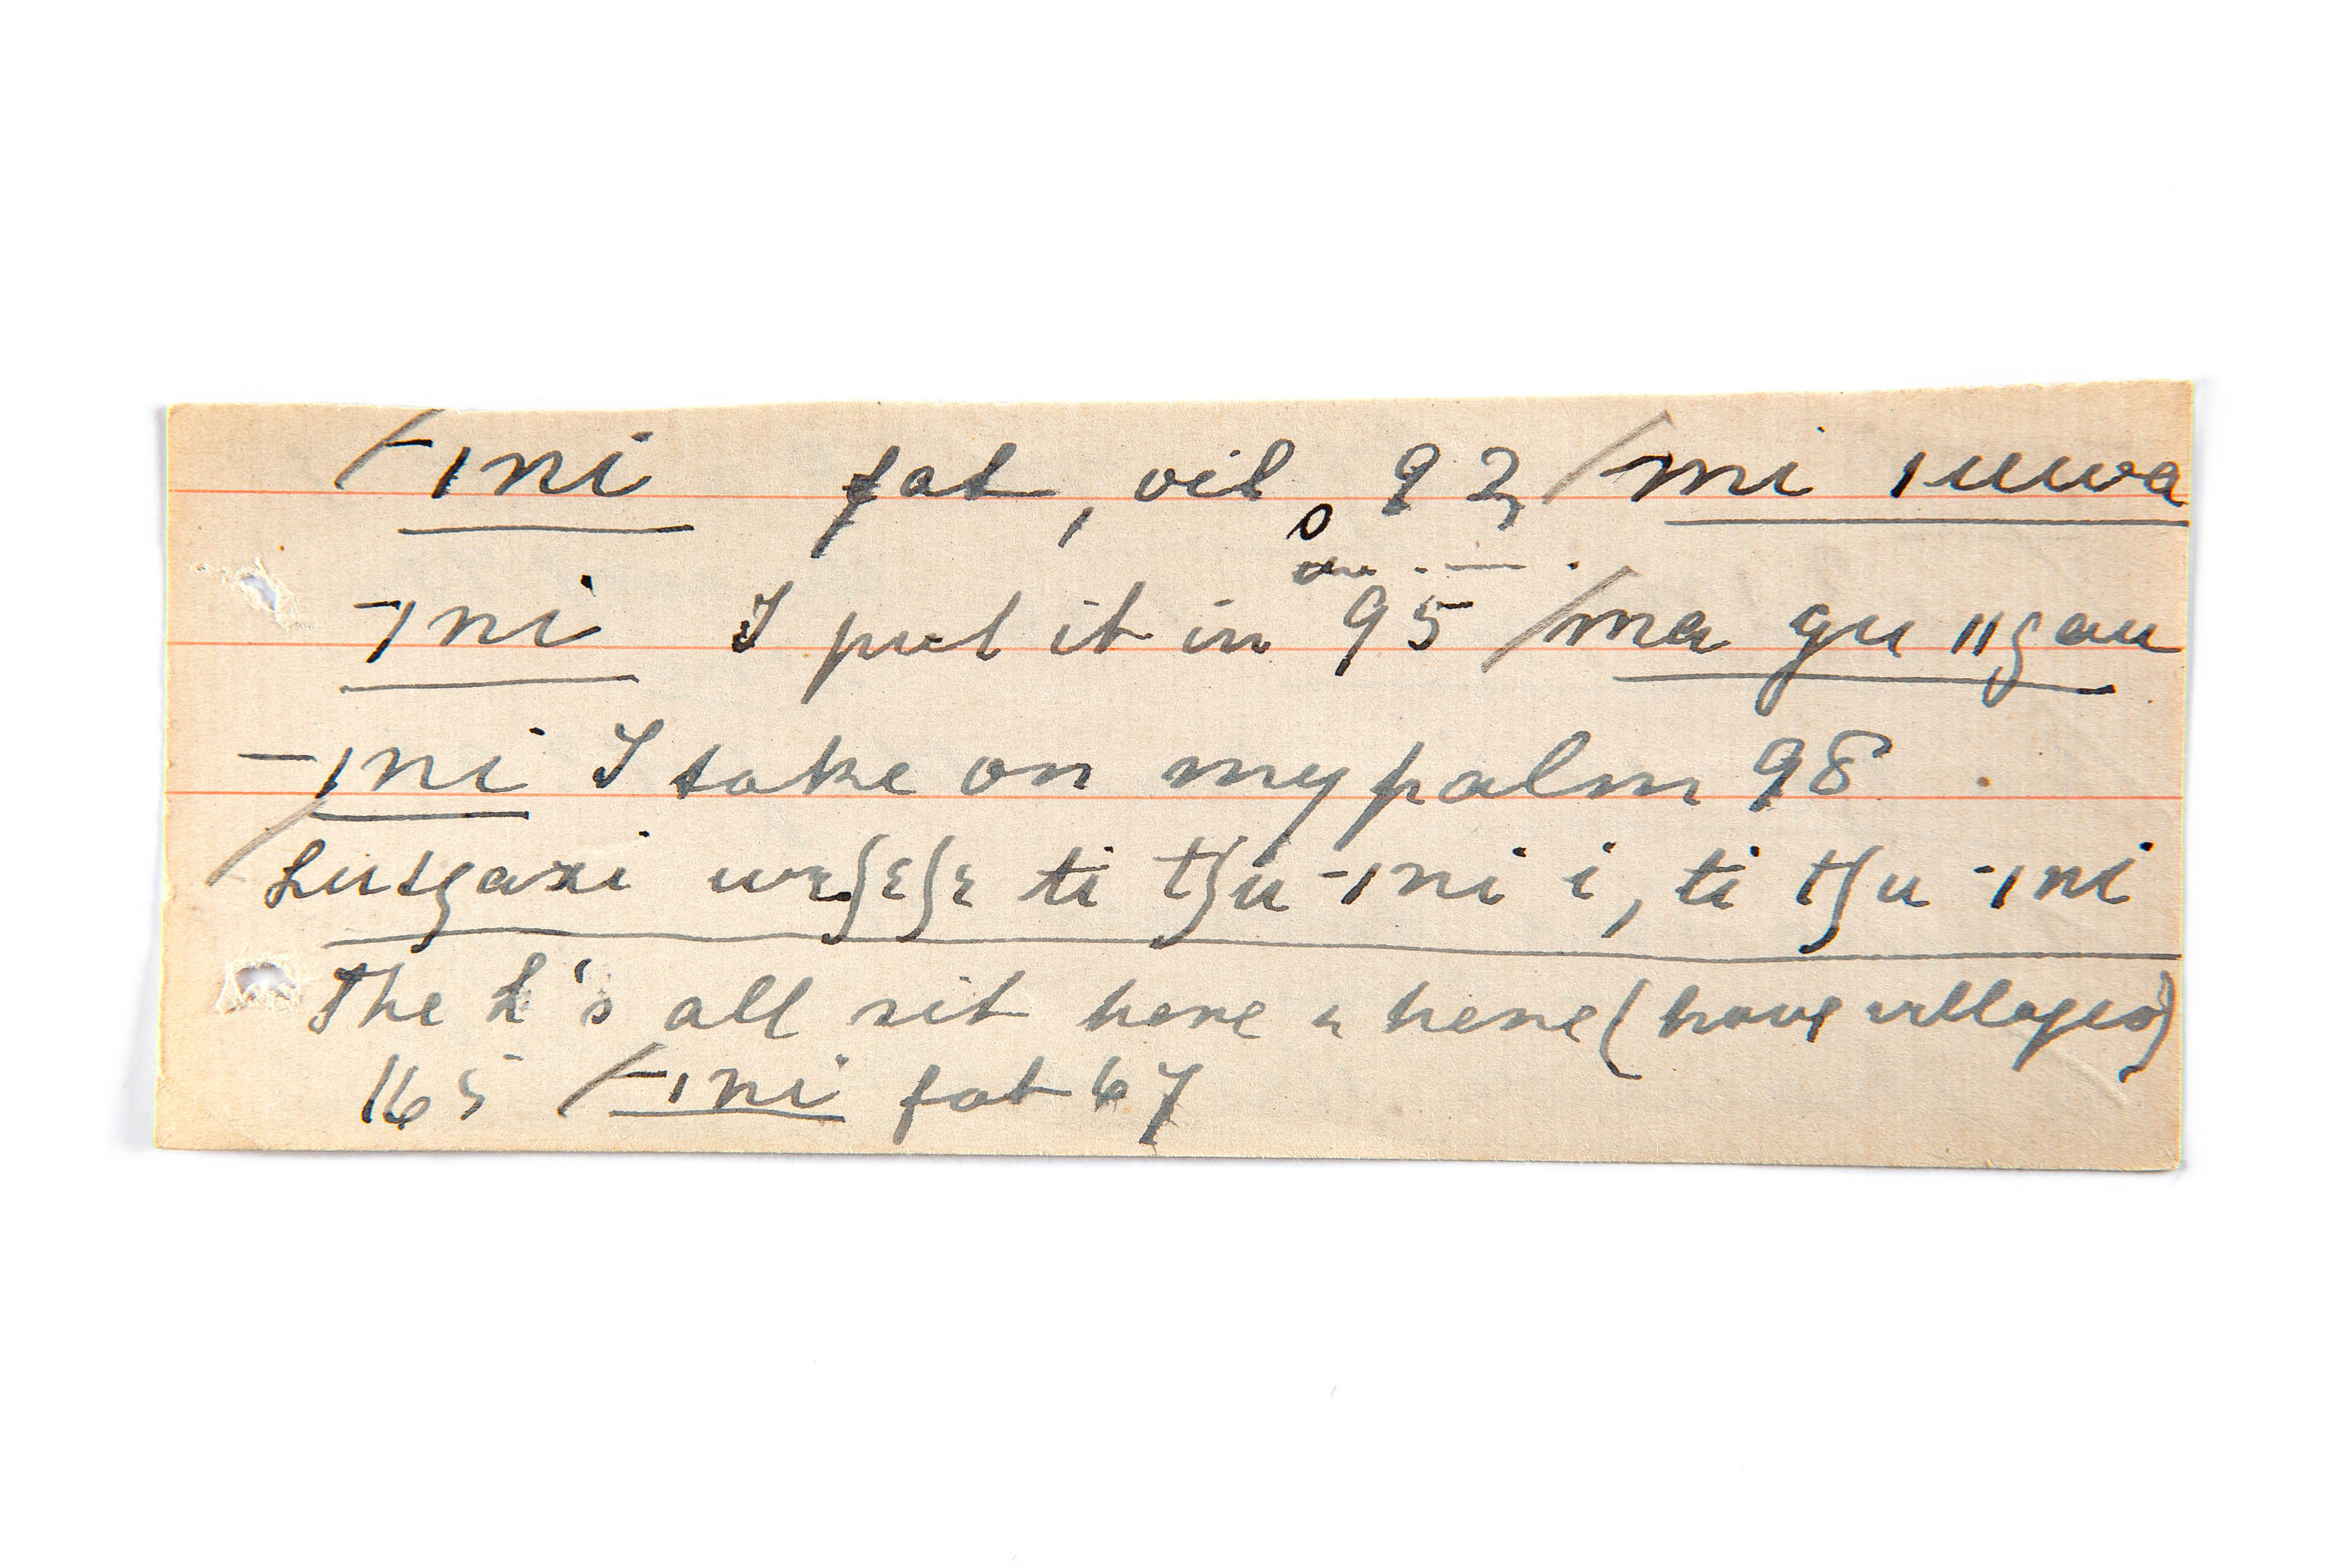 /-ıni fat, oil, 92, /mi ıuwa
-ıni I put it in 95 /ma gu ııʒau
-ıni I take on my palm 98
/Lutʒaxi wɛʃɛʃɛ ti tʃu-ıni i, ti tʃu-ıni
The L's all sit here & here (have villages)
165 /-ıni fat 67